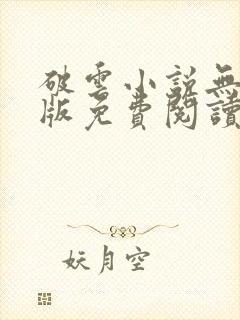 破雲小說無
版免費閱讀
妖月空